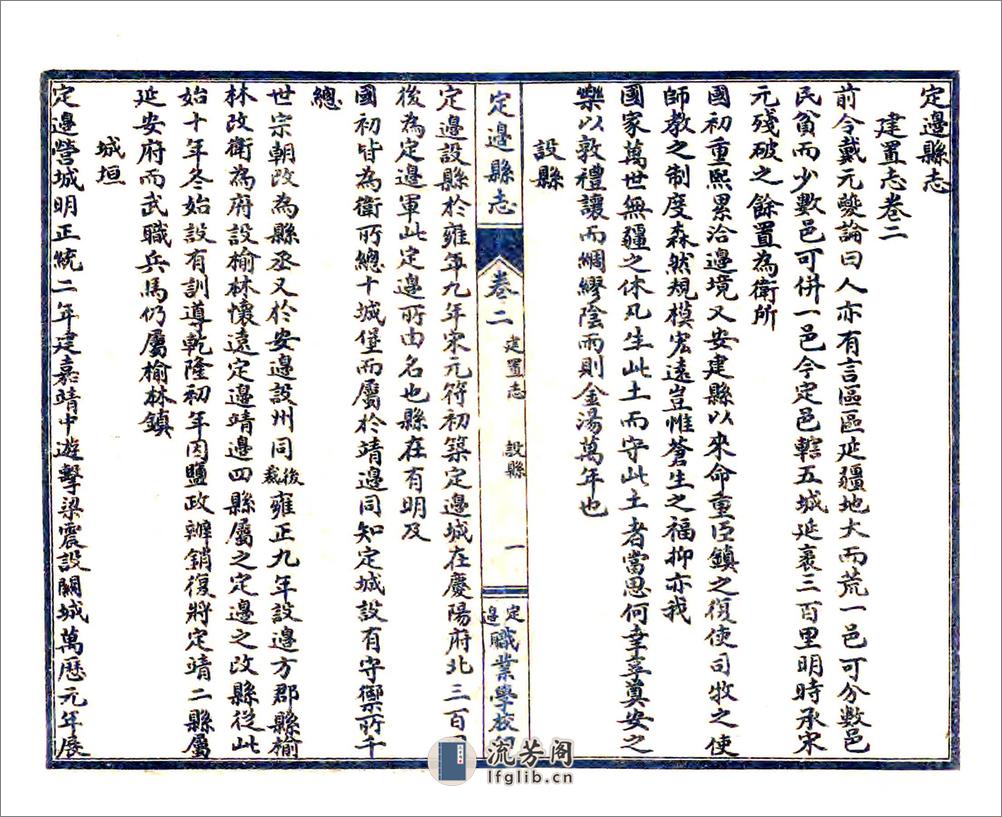 定邊縣志
建置志卷二
前令戴元夔論曰人亦有言區區延疆地大而荒一邑可分數邑
民貧而少數邑可併一邑今定邑轄五城延袤三百里明時承宋
元殘破之餘置為衛所
國初重熙累洽邊境又安建縣以來命重臣鎮之復使司牧之使
師教之制度森然規模宏遠豈惟蒼生之福抑亦我
國家萬世無疆之休凡生此土而守此土者當思何幸享奠安之
樂以敦禮讓而綢繆陰雨則金湯萬年也
設縣
定邊縣志
卷二
建置志
設縣
一
定邊職業學校
定邊設縣於雍年九年宋元符初築定邊城在慶陽府北三百
後為定邊軍此定邊所由名也縣在有明及
國初皆為衛所總十城堡而屬於靖邊同知定城設有守禦所千
總
世宗朝改為縣丞又於安邊設州同後裁雍正九年設邊方郡縣榆
林改衛為府設榆林懷遠定邊靖邊四縣屬之定邊之改縣從此
始十年冬始設有訓導乾隆初年因鹽政辦銷復將定靖二縣屬
延安府而武職兵馬仍屬榆林鎮
城垣
定邊營城明正統二年建嘉靖中遊擊梁震設關城萬歷元年展
流芳阁
lfglib.cn